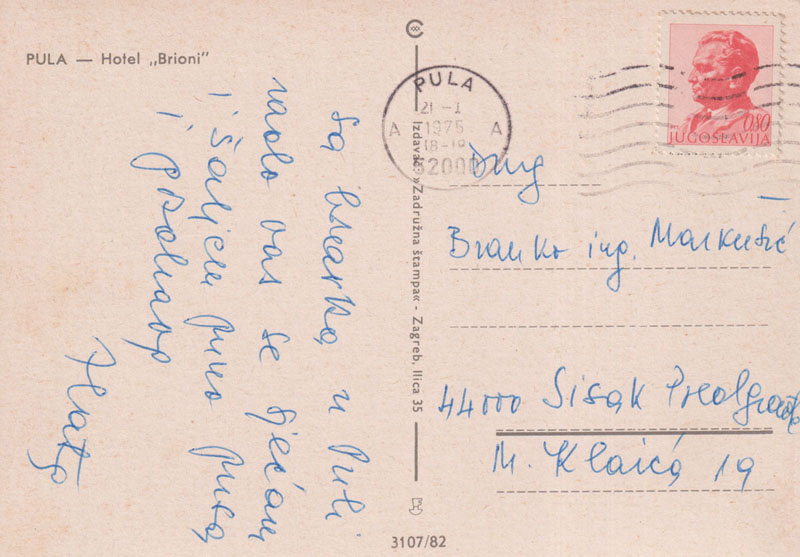 PULA — Hotel „Brioni"
sa u Puli
rado vas se sjećam
i šaljem puno pusa
i pozdrav
Izdavač: »Zadružna štampa« - Zagreb, Ilica 35
3107/82
PULA
21 -I
1975
A A
18-19
52000
0.80
JUGOSLAVIJA
Drug
Branko ing. Markušić
44000 Sisak Predgrađe
M. Klaića 19